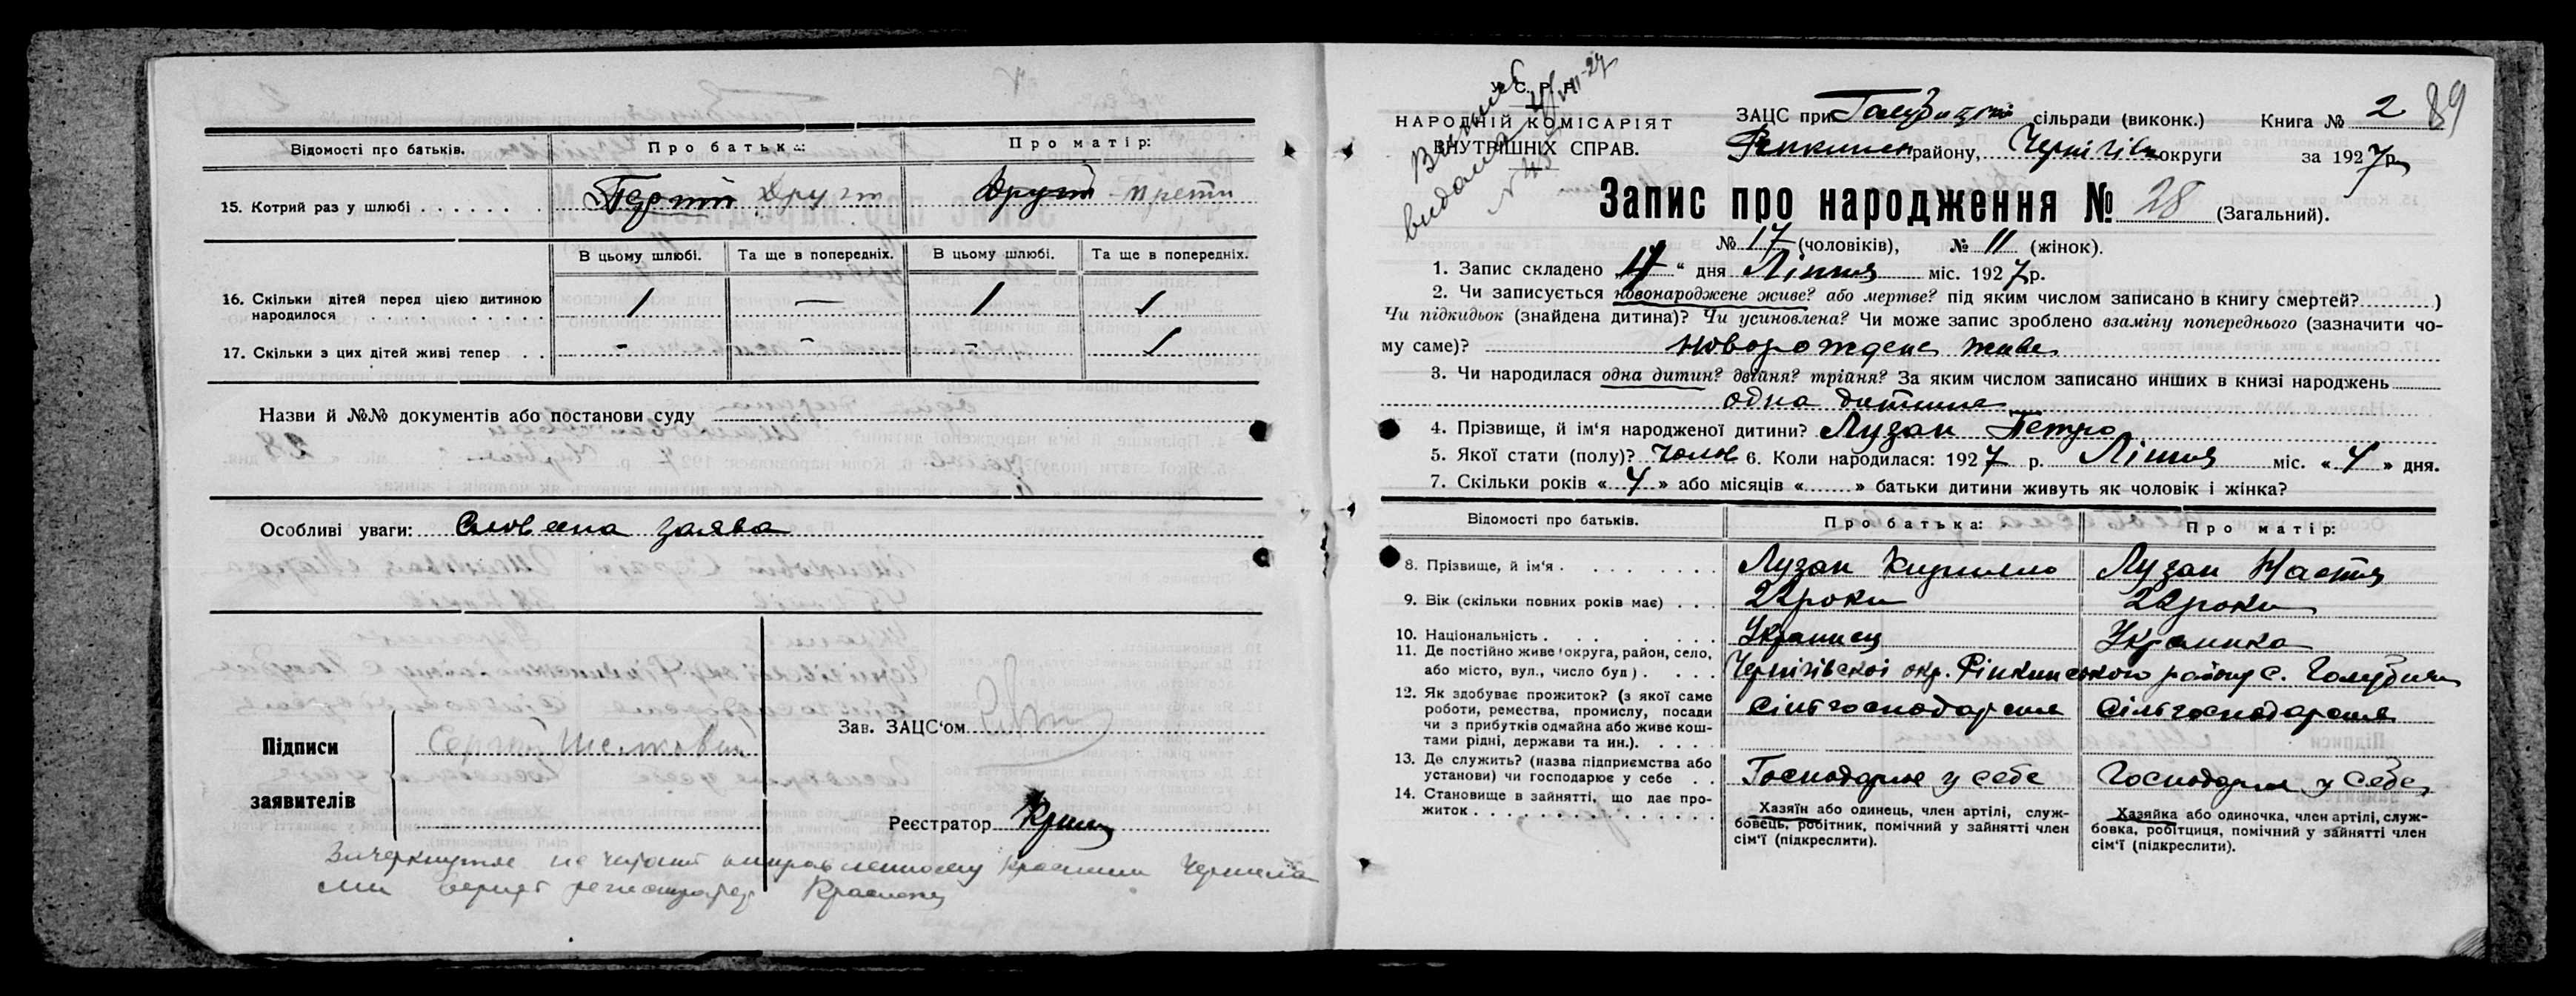 Відомості про батьків.
Про батька:
Про матір:
15. Котрий раз у шлюбі
Перший Другий
Другий - третій
В цьому шлюбі.
Та ще в попередніх.
В цьому шлюбі.
Та ще в попередніх.
16. Скільки дітей перед цією дитиною
народилося
1 — 1 1
17. Скільки з цих дітей живі тепер - - - 1
Назви й №№ документів або постанови суду
Особливі уваги: Словесна заява
Підписи
заявителів
Сергій
Зав. ЗАЦС'ом
Реєстратор
Зачеркнутое не читать
верно
У.С.Р.Р.
НАРОДНІЙ КОМІСАРІЯТ
ВНУТРІШНІХ СПРАВ.
видана
ЗАЦС при сільради (виконк.) Книга № 2 89
району, Чернігів округи за 1927 р.
Запис про народження № 28 (Загальний).
№ 17 (чоловіків), № 11 (жінок).
1. Запис складено „ “ дня Липня міс. 1927 р.
2. Чи записується новонароджене живе? або мертве? під яким числом записано в книгу смертей? )
Чи підкидьок (знайдена дитина)? Чи усиновлена? Чи може запис зроблено взаміну попереднього (зазначити чо-
му саме)? новорождене живе
3. Чи народилася одна дитин? двійня? трійня? За яким числом записано инших в книзі народжень
одна дитина
4. Прізвище, й ім'я народженої дитини? Лузан Петро
5. Якої стати (полу)? Чолов 6. Коли народилася: 1927 р. Липня міс. « 4 » дня.
7. Скільки років « 4 » або місяців « » батьки дитини живуть як чоловік і жінка?
Відомості про батьків.
Про батька:
Про матір:
8. Прізвище, й ім'я
Лузан Кирило
Лузан Настя
9. Вік (скільки повних років має)
22 роки
22 роки
10. Національність
Українец
Українка
11. Де постійно живе (округа, район, село,
або місто, вул., число буд)
Чернігівскої окр. Ріпкинського району с. Голубичи
12. Як здобуває прожиток? (з якої саме
роботи, ремества, промислу, посади
чи з прибутків одмайна або живе кош-
тами рідні, держави та ин.).
Сільгосподарення
Сільгосподарення
13. Де служить? (назва підприємства або
установи) чи господарює у себе
Господарює у себе
Господарює у себе
14. Становище в зайнятті, що дає про-
житок
Хазяїн або одинець, член артілі, служ-
бовець, робітник, помічний у зайнятті член
сім'ї (підкреслити).
Хазяйка або одиночка, член артілі, служ-
бовка, робітциця, помічний у зайнятті член
сім'ї (підкреслити).